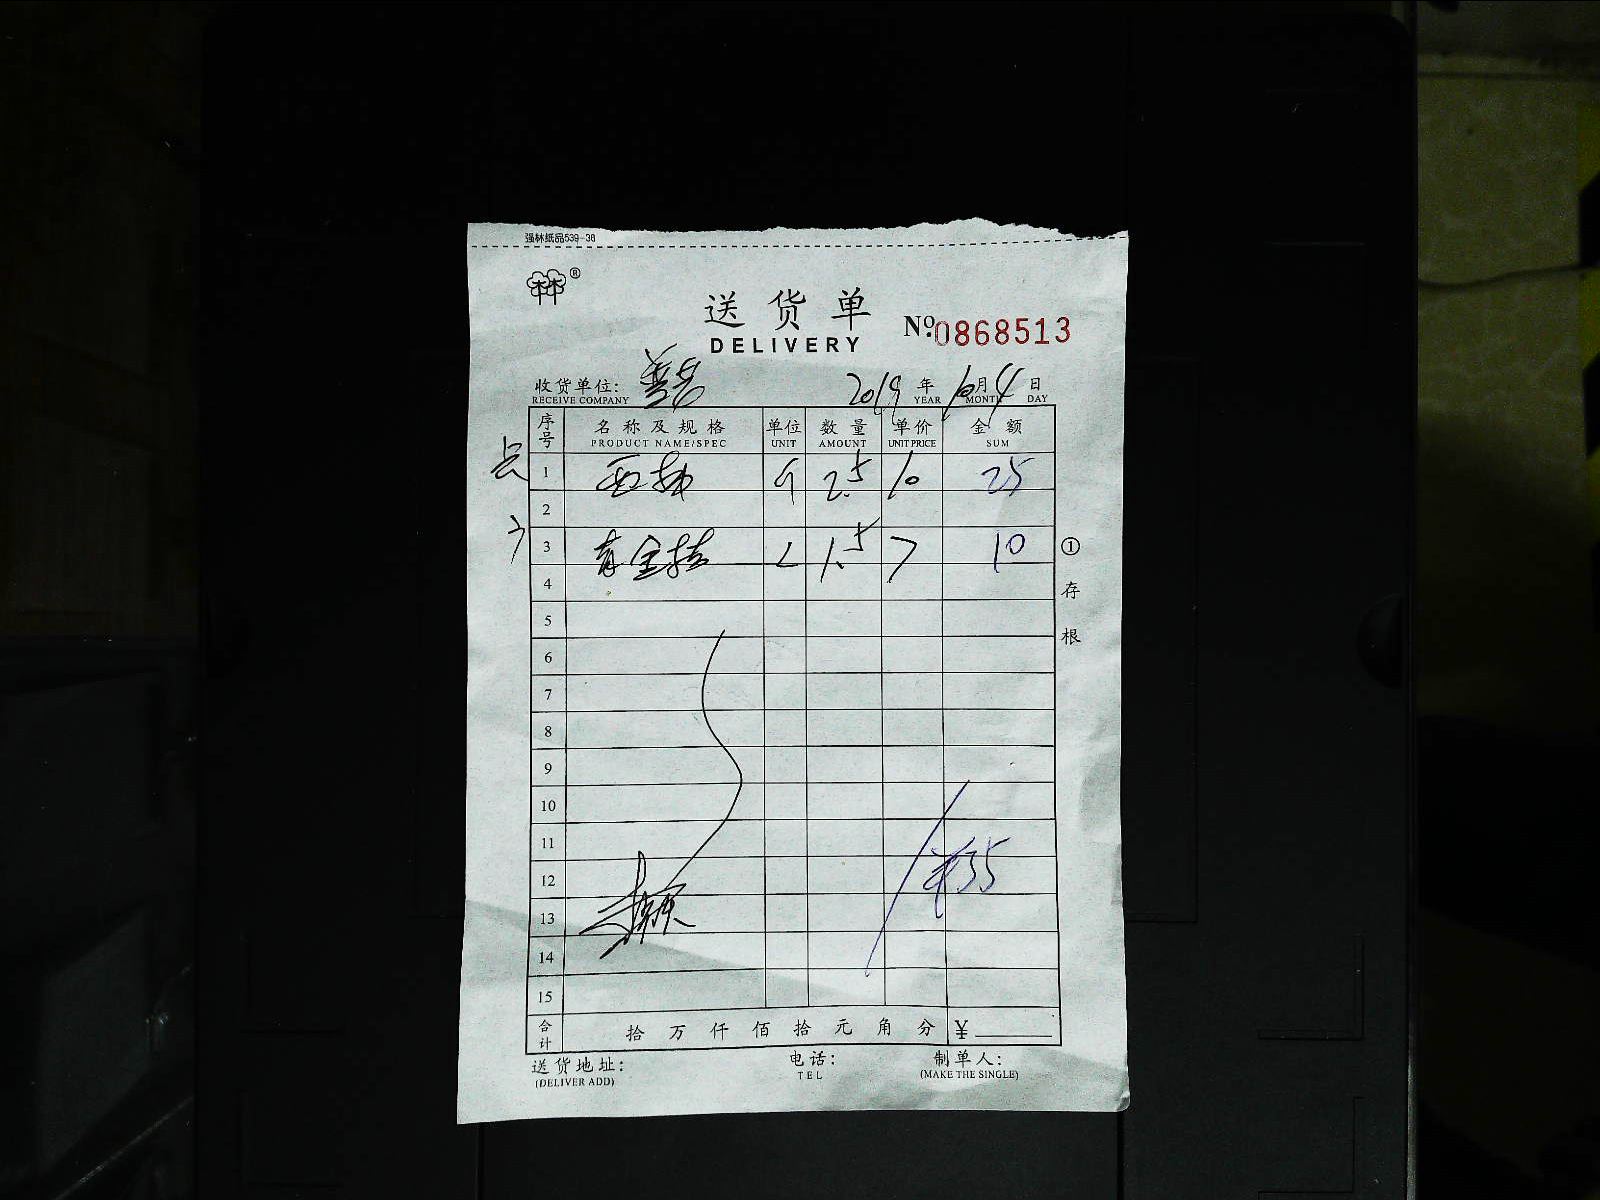 强林纸品539-30
林®
送货单
DELIVERY
№ 0868513
收货单位:
RECEIVE COMPANY
2019 年 10 月 4 日
YEAR MONTH DAY
序号 名称及规格 单位 数量 单价 金额
PRODUCT NAME/SPEC UNIT AMOUNT UNIT PRICE SUM
1 2.5 10 25
2
3 1.5 7 10
4
5
6
7
8
9
10
11
12 ¥35
13
14
15
合计 拾 万 仟 佰 拾 元 角 分 ¥
①存根
送货地址: 电话: 制单人:
(DELIVER ADD) TEL (MAKE THE SINGLE)